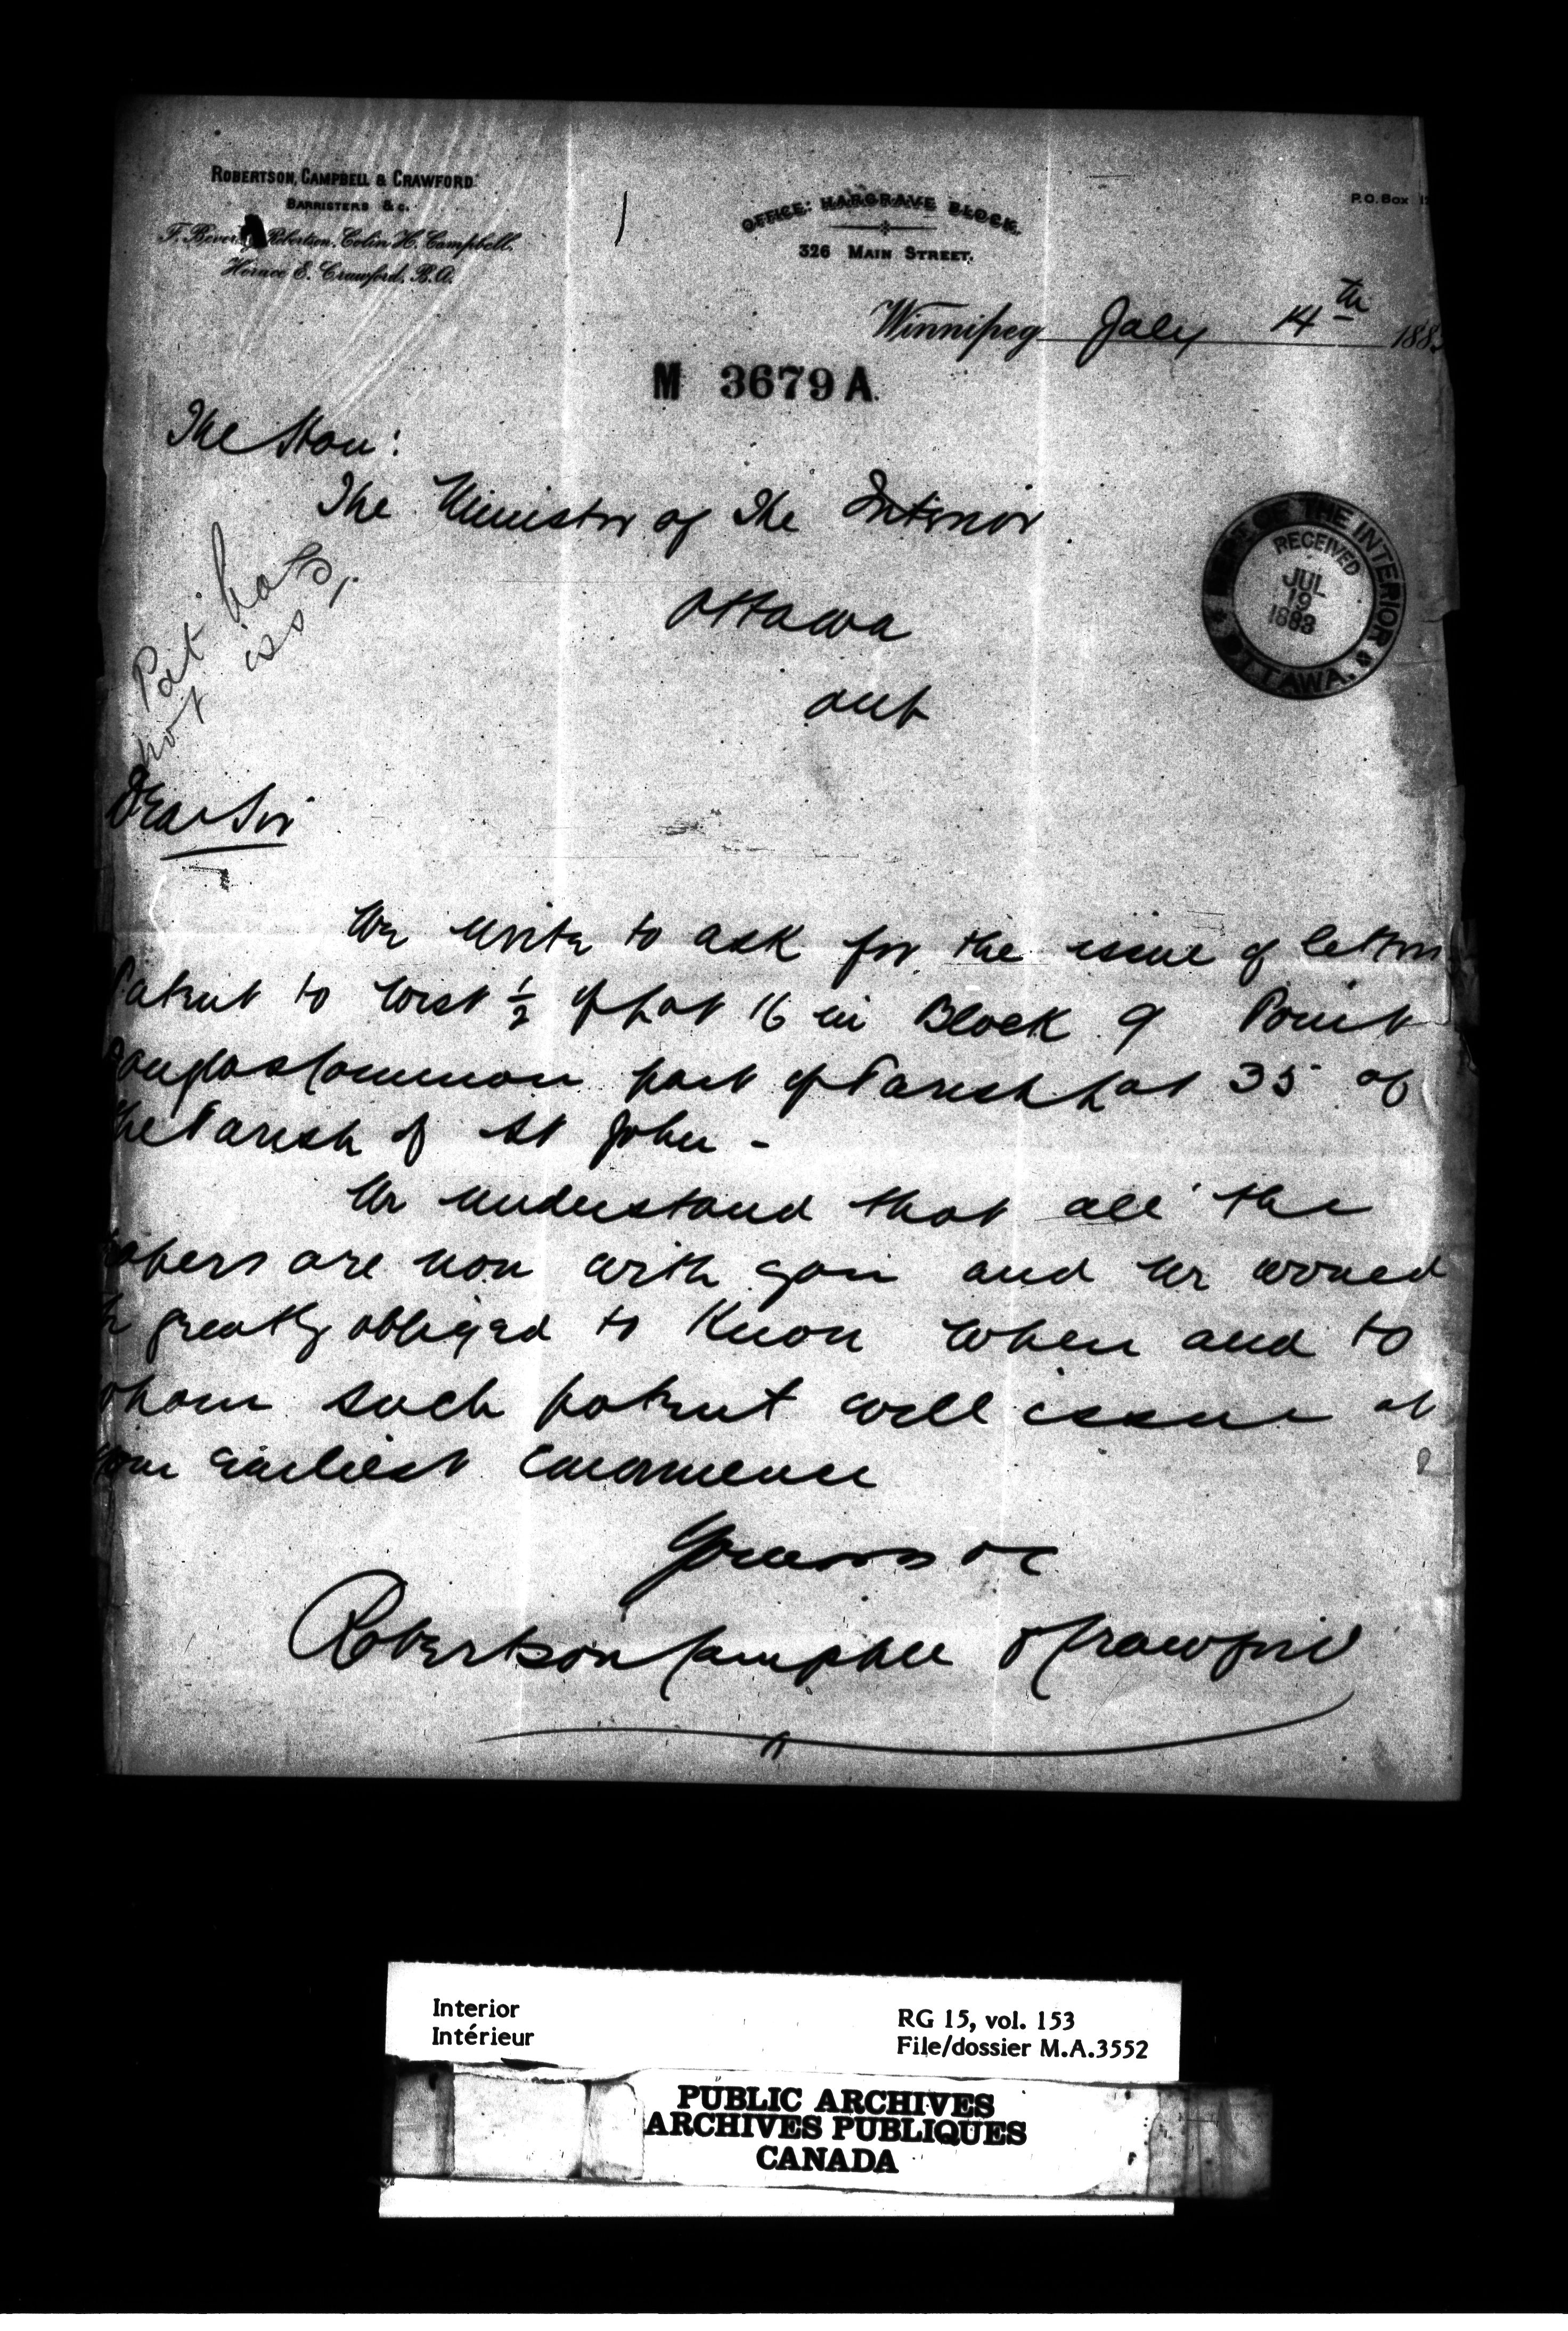 ROBERTSON, CAMPBELL & CRAWFORD.
BARRISTERS &c.
F. Beverly Robertson, Colin H. Campbell,
Horace E. Crawford, B.A.
OFFICE: HARGRAVE BLOCK,
326 MAIN STREET.
P.O. Box
Winnipeg July 14th 188
M 3679 A.
The Hon:
The Minister of the Interior
Ottawa
Ont
Pat has
not iss.
DEPT OF THE INTERIOR
RECEIVED
JUL
19
1883
OTTAWA.
Dear Sir
We write to ask for the issue of letters
Patent to West ½ of Lot 16 in Block 9 Point
Douglas Common part of Parish Lot 35 of
the Parish of St John -
We understand that all the
papers are now with you and we would
be greatly obliged to know when and to
whom such patent will issue at
your earliest convenience
Yours &c
Robertson Campbell & Crawford
Interior
Intérieur
RG 15, vol. 153
File/dossier M.A.3552
PUBLIC ARCHIVES
ARCHIVES PUBLIQUES
CANADA